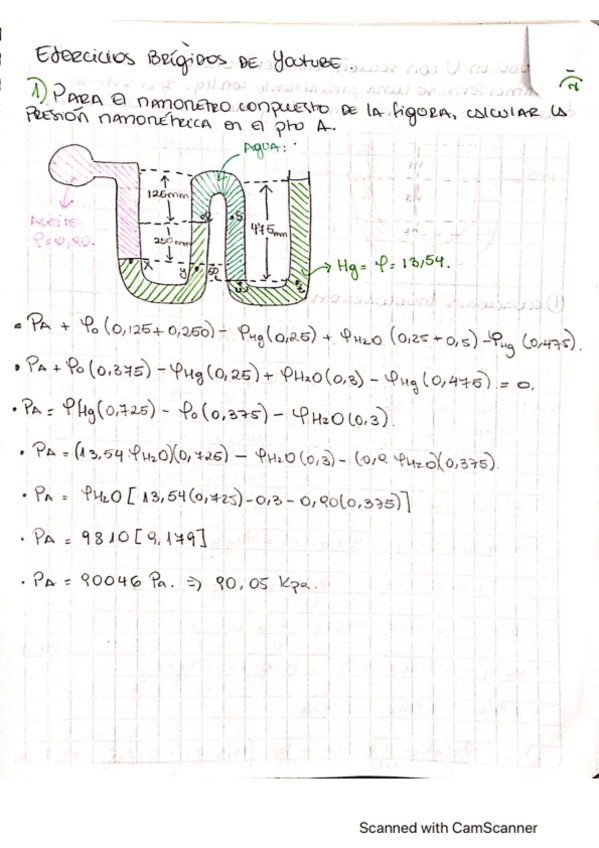 Ejercicios Brígidos de Youtube.
1) Para el manometro compuesto de la figura, calcular la
presión manométrica en el pto A.
Agua:
125mm
250mm
475mm
50
Aceite
ρ=0,90.
x
y
Hg = φ = 13,54.
• PA + φo (0,125+0,250) - φHg (0,25) + φH2O (0,25+0,5) - φHg (0,475).
• PA + φo (0,375) - φHg (0,25) + φH2O (0,3) - φHg (0,475) = 0.
• PA = φHg (0,725) - φo (0,375) - φH2O (0,3).
• PA = (13,54 φH2O)(0,725) - φH2O (0,3) - (0,9 φH2O)(0,375)
• PA = φH2O [13,54 (0,725) - 0,3 - 0,90 (0,375)]
• PA = 9810 [9,179]
• PA = 90046 Pa. ⇒ 90,05 Kpa.
Scanned with CamScanner